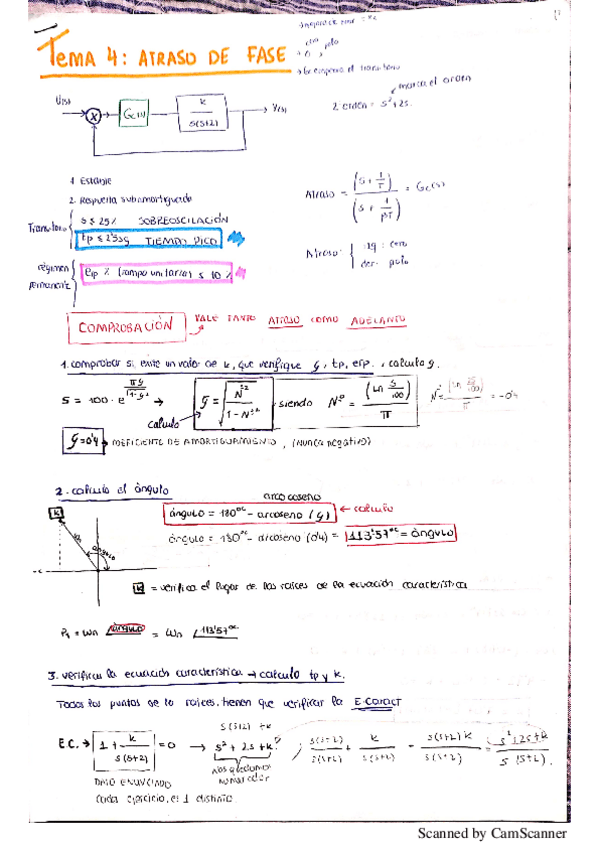 TEMA 4: ATRASO DE FASE
marca el orden
2 orden = s²+2s.
U(s) X Gc(s) k/s(s+2) Y(s)
1. Estable
2. Respuesta subamortiguada
Transitorio
s ≤ 25% SOBREOSCILACIÓN
tp ≤ 2'5sg TIEMPO PICO
régimen permanente
erp % (rampa unitaria) ≤ 10%
Atraso = (s + 1/T) / (s + 1/βT) = Gc(s)
Atraso: izq: cero
der: polo
COMPROBACIÓN
VALE TANTO ATRASO COMO ADELANTO
1. comprobar si existe un valor de k, que verifique ζ, tp, erp., calculo ζ.
calculo
siendo
N² = (ln s/100) / π = -0'4
ζ=0'4 → COEFICIENTE DE AMORTIGUAMIENTO, (nunca negativo)
2. calculo el ángulo
arcocoseno
ángulo = 180º - arcoseno (ζ) ← calculo
ángulo = 180º - arcoseno (0'4) = 113'57º = ángulo
k
Wn
ángulo
k = verifica el lugar de las raíces de la ecuación característica
P₁ = Wn ∠ángulo = Wn ∠113'57º
3. verificar la ecuación característica → calculo tp y k.
Todos los puntos de la raíces, tienen que verificar la E.Caract
E.C. → 1 + k/s(s+2) = 0 → s² + 2s + k
s(s+2) + k
nos quedamos numerador
s(s+2)/s(s+2) + k/s(s+2) = s(s+2) k/s(s+2) = s²+2s+k/s(s+2).
DATO ENUNCIADO
cada ejercicio, es 1 distinto
Scanned by CamScanner